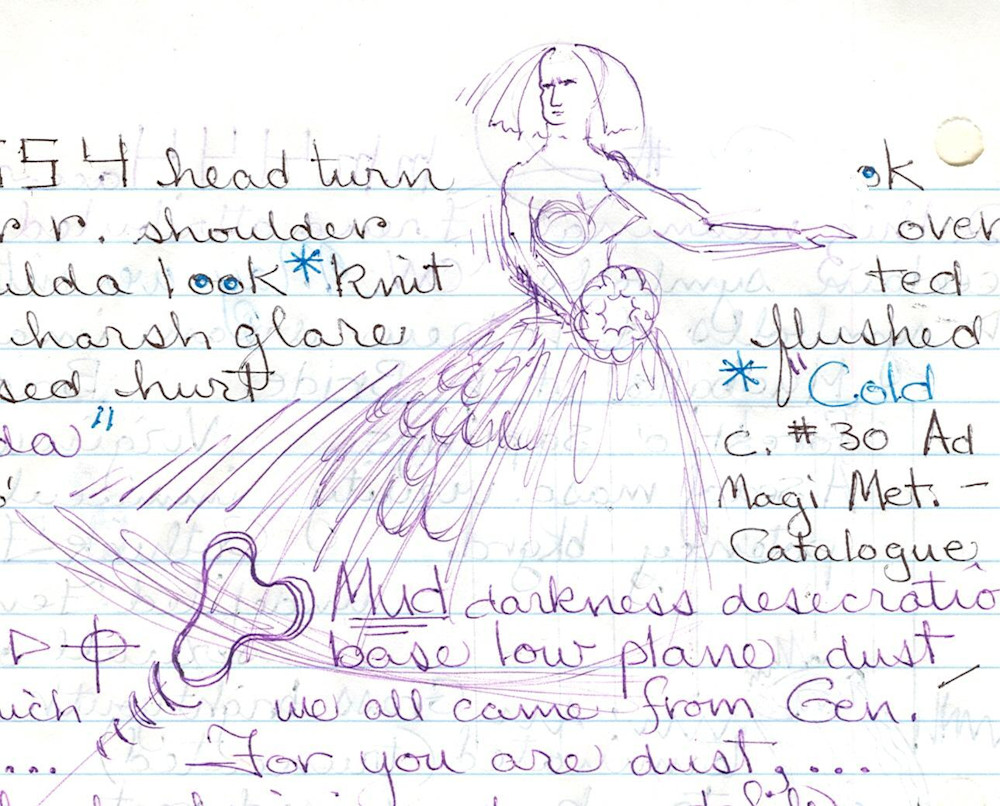 54 head turn ok
r. shoulder over
look * knit ted
harsh glare flushed
hurt * "Cold
" c. #30 Ad
Magi Met. -
Catalogue
Mud darkness desecratio
base low plane dust
we all came from Gen.
... For you are dust, ....